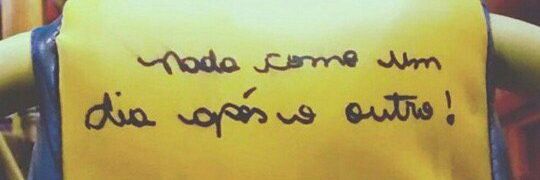 Nada como um
dia após o outro!